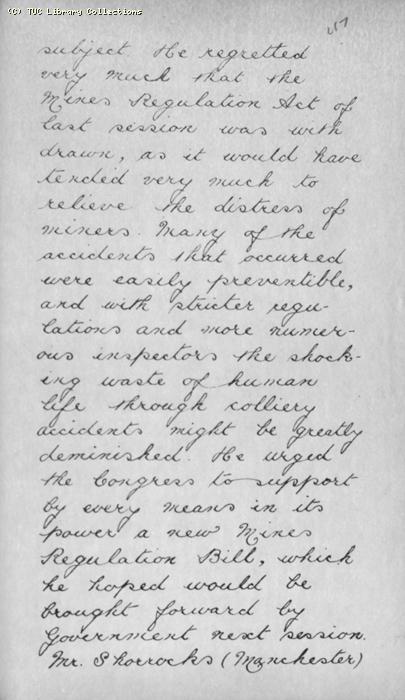 (C) TUC Library Collections
subject He regretted
very much that the
Mines Regulation Act of
last session was with
drawn, as it would have
tended very much to
relieve the distress of
miners. Many of the
accidents that occurred
were easily preventible,
and with stricter regu-
lations and more numer-
ous inspectors the shock-
ing waste of human
life through colliery
accidents might be greatly
deminished. He urged
the Congress to support
by every means in its
power a new Mines
Regulation Bill, which
he hoped would be
brought forward by
Government next session.
Mr. Shorrocks (Manchester)